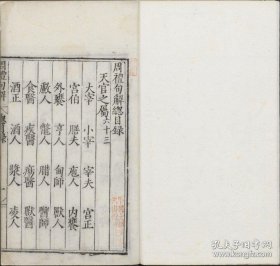 周禮句解總目錄
天官之屬六十三
大宰 小宰 宰夫 宮正
宮伯 膳夫 庖人 內饔
外饔 亨人 甸師 獸人
䱷人 鼈人 腊人 醫師
食醫 疾醫 瘍醫 獸醫
酒正 酒人 漿人 凌人
孔夫子旧书网